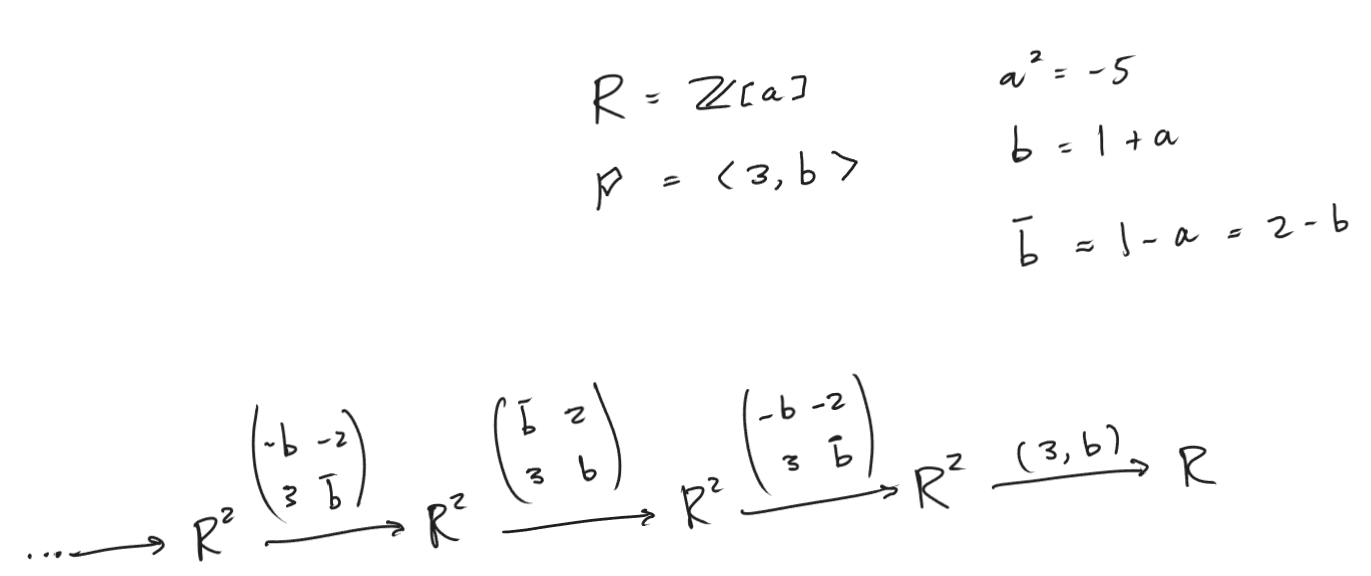 R = ℤ[a]
a² = -5
𝔭 = <3, b>
b = 1 + a
b̄ = 1 - a = 2 - b
.... ⟶ R² \xrightarrow{\begin{pmatrix} -b & -2 \\ 3 & \bar{b} \end{pmatrix}} R² \xrightarrow{\begin{pmatrix} \bar{b} & 2 \\ 3 & b \end{pmatrix}} R² \xrightarrow{\begin{pmatrix} -b & -2 \\ 3 & \bar{b} \end{pmatrix}} R² \xrightarrow{(3, b)} R